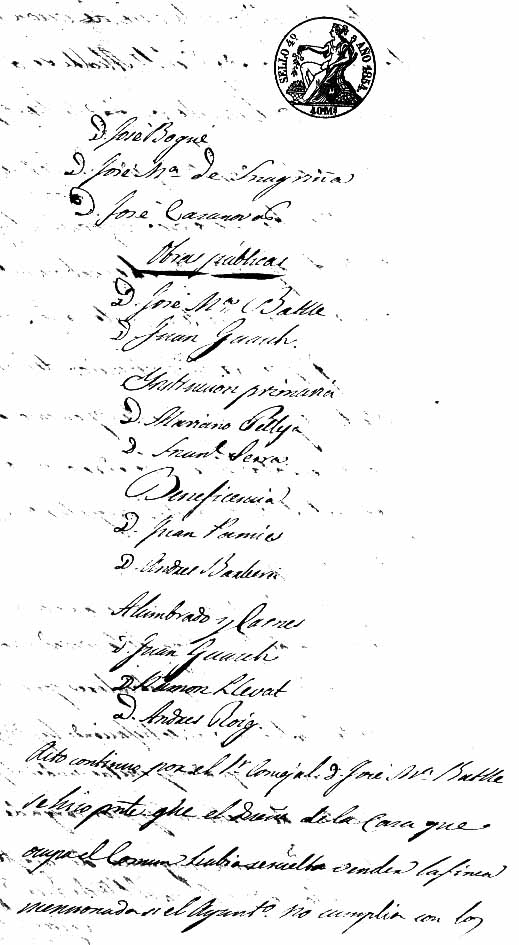 SELLO 4º AÑO 1854.
40 Ms
D. José Bogué
D. José Mª de
D. José Casanovas
Obras públicas
D. José Mª Batlle
D. Juan Guasch.
Instruccion primaria
D. Mariano Pellija
D. Franco Serra
Beneficencia
D. Juan Pamies
D. Andres Barberá
Alumbrado y Carnes
D. Juan Guasch
D. Ramon Llevat
D. Andres Roig.
Acto continuo por el Sr Concejal D. José Mª Batlle
se hizo pnte. qhe el Dueño de la Casa que
ocupa el Comun habia resuelto vender la finca
mencionada si el Ayuntº no cumplia con los